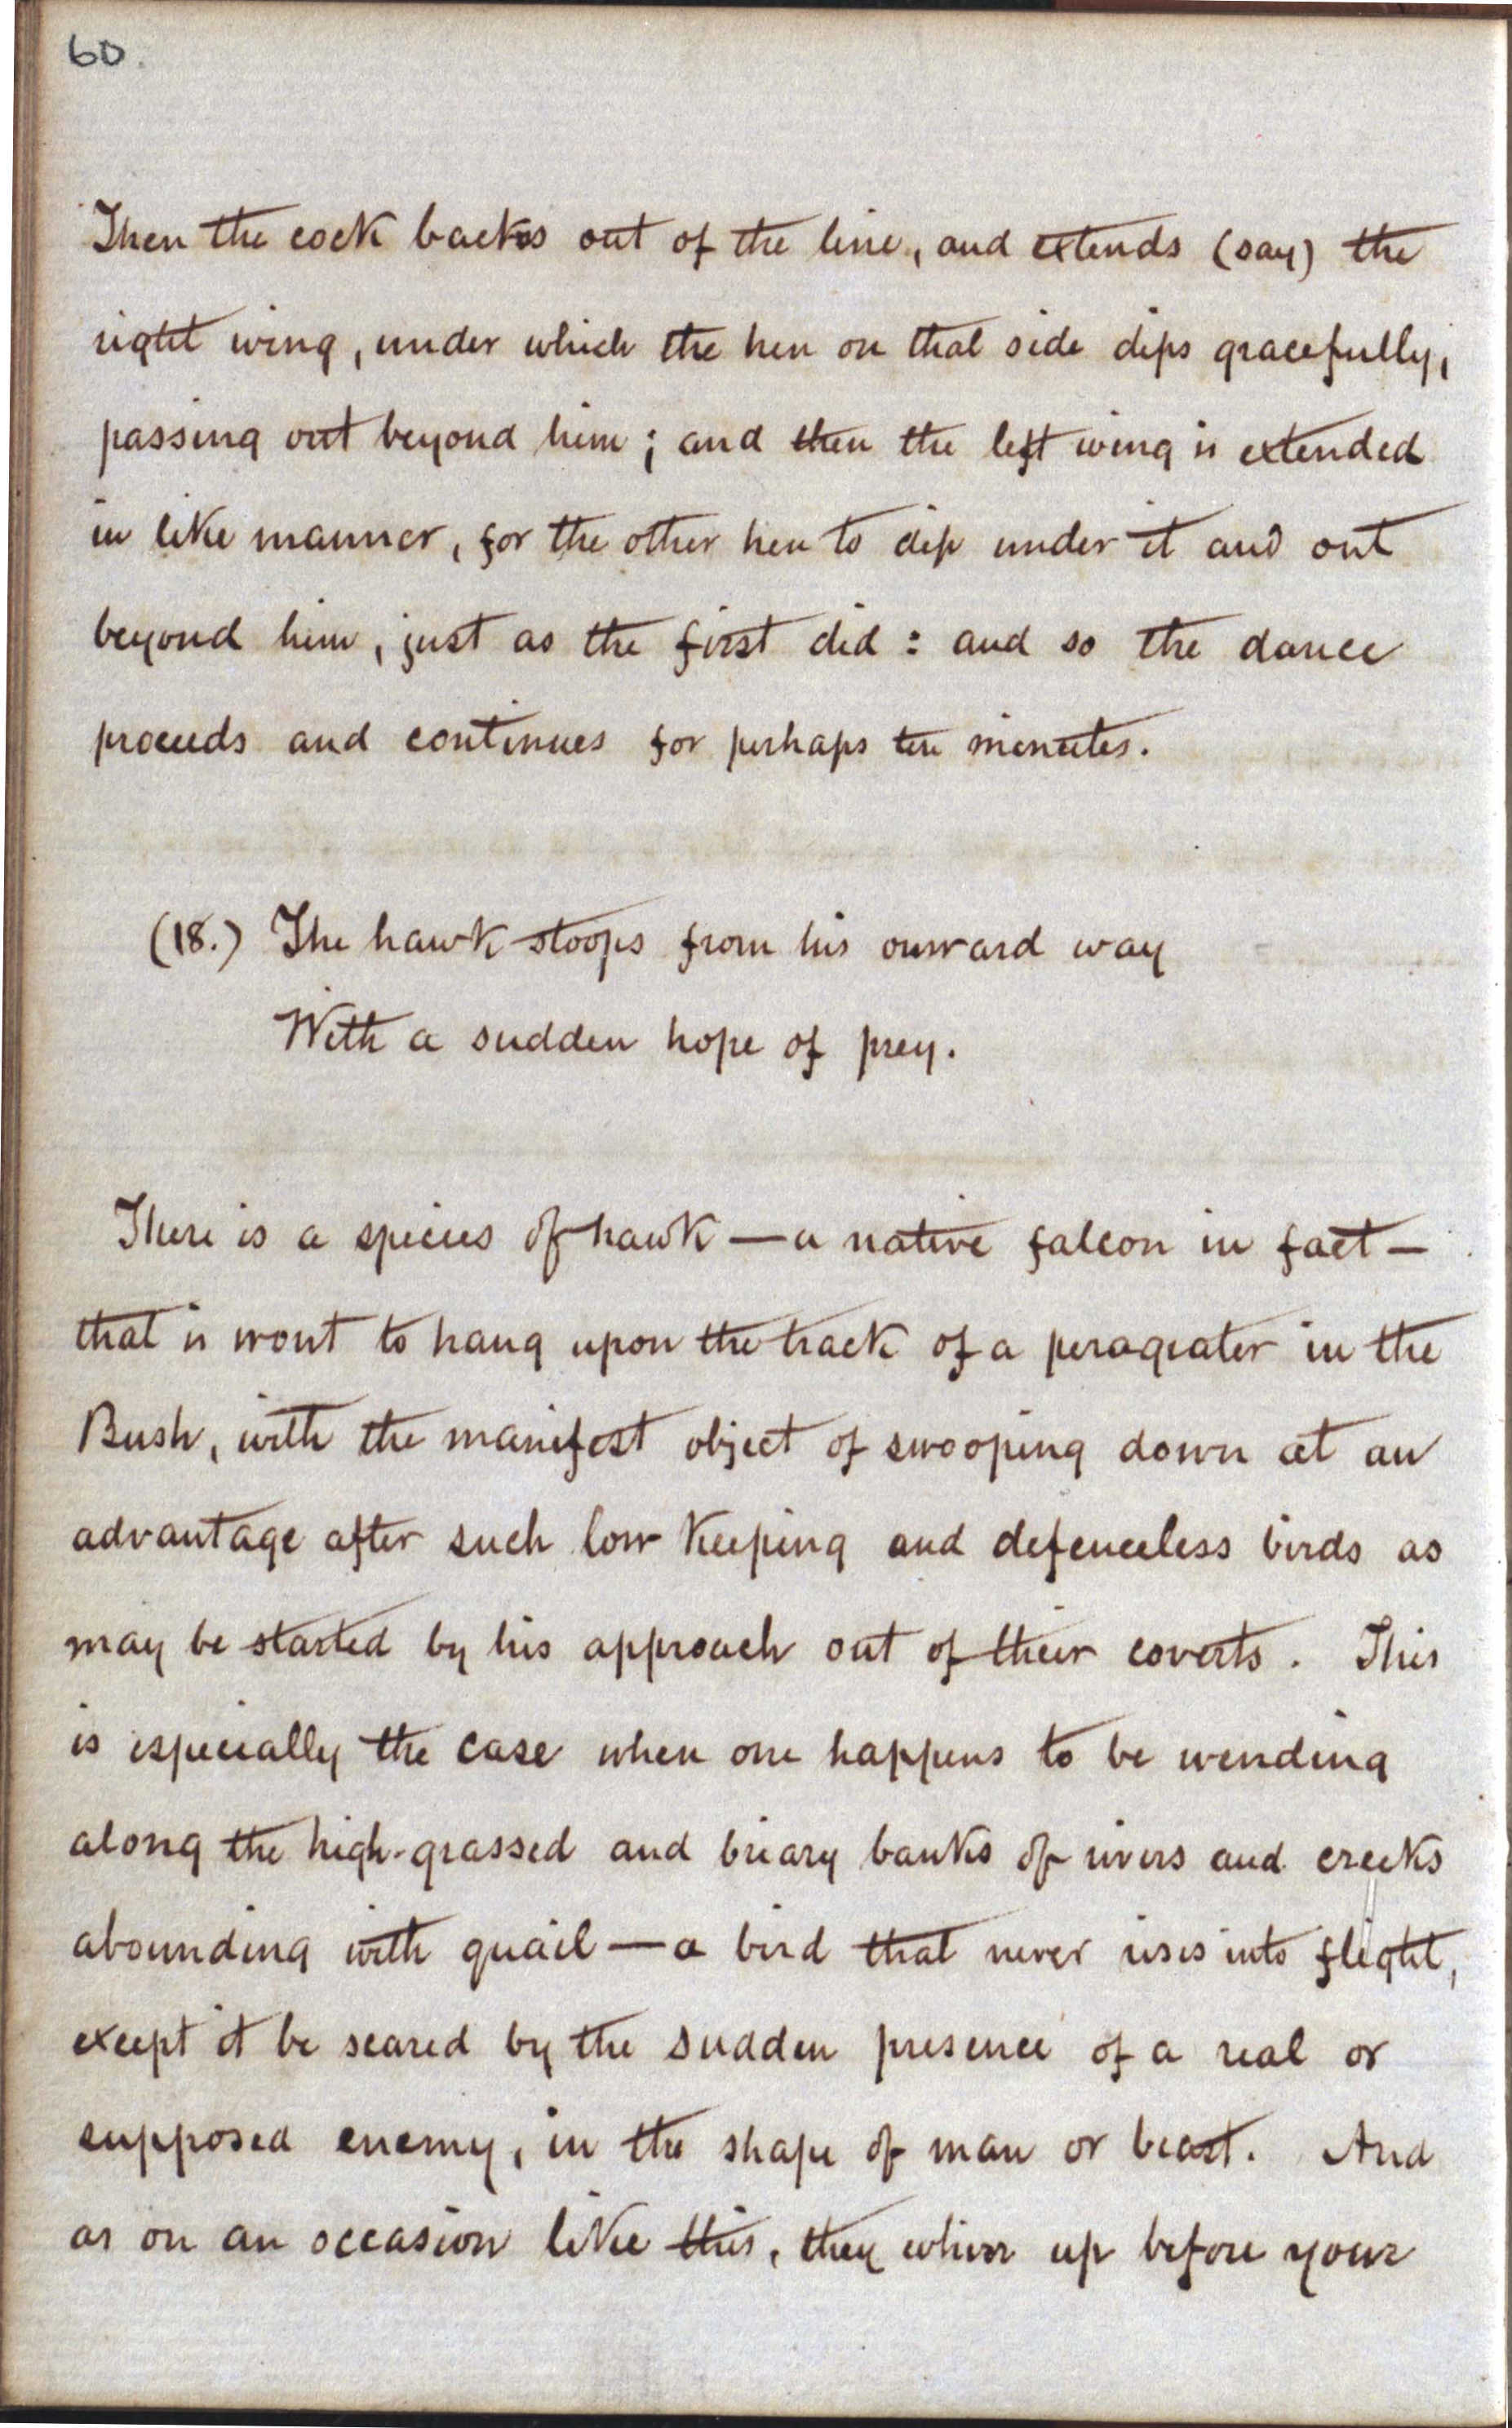 60.
Then the cock backs out of the line, and extends (say) the
right wing, under which the hen on that side dips gracefully,
passing out beyond him; and then the left wing is extended
in like manner, for the other hen to dip under it and out
beyond him, just as the first did: and so the dance
proceeds and continues for perhaps ten minutes.
(18.) The hawk stoops from his onward way
With a sudden hope of prey.
There is a species of hawk — a native falcon in fact —
that is wont to hang upon the track of a peragrater in the
Bush, with the manifest object of swooping down at an
advantage after such low keeping and defenceless birds as
may be started by his approach out of their coverts. This
is especially the case when one happens to be wending
along the high-grassed and briary banks of rivers and creeks
abounding with quail — a bird that never rises into flight,
except it be scared by the sudden presence of a real or
supposed enemy, in the shape of man or beast. And
as on an occasion like this, they whirr up before your